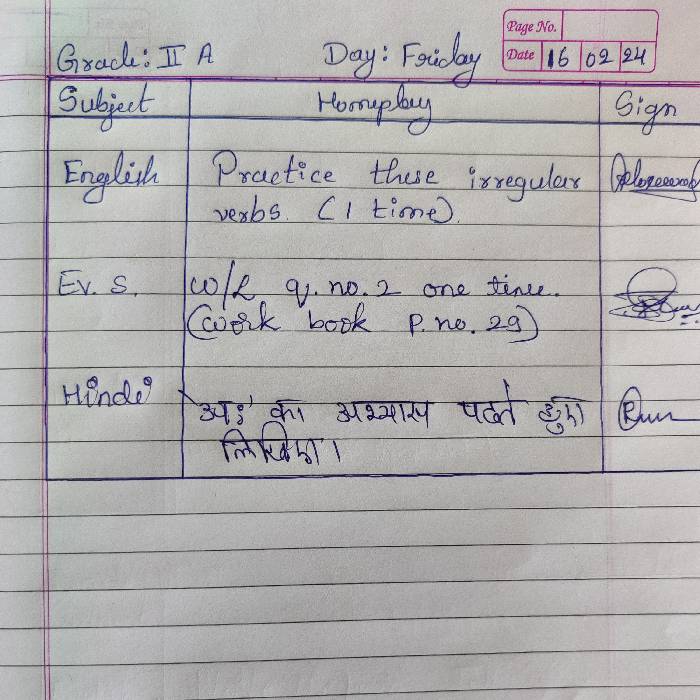 Page No.
Grade: II A Day: Friday Date 16 02 24
Subject Homeplay Sign
English Practice these irregular
verbs. (1 time).
Ev. S. w/L q. no. 2 one time.
(Work book P. no. 29)
Hindi का अभ्यास पढते हुए
लिखिए।